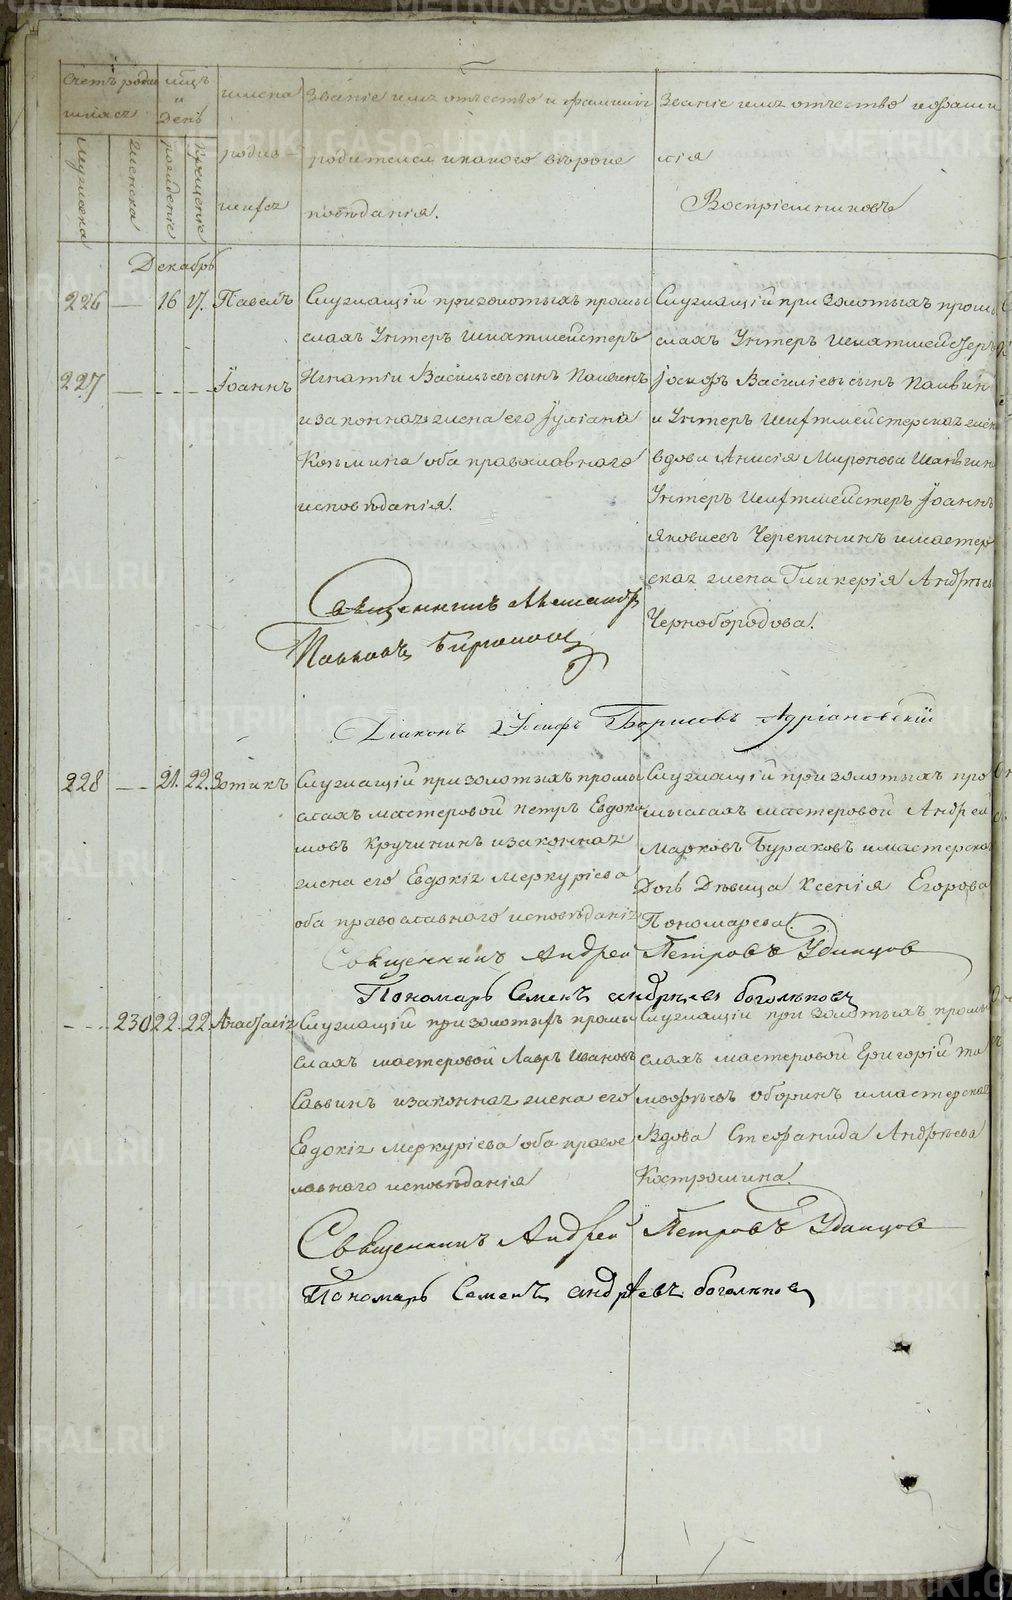 Счетъ родив
шихся
мцъ
и
день
имена
родив-
шихся
Званіе имя отчество и фамилія
родителей и какого вѣроис
повѣданія.
Званіе имя отчество и фами
лія
Воспріемниковъ
Мужеска
Женска
рожденіе
Крещеніе
Декабрь
226 — 16 17. Павелъ
Служащій при золотыхъ промы
слахъ Унтеръ Шихтмейстеръ
227 — — — Іоаннъ
Игнатій Васильевъ сынъ
и законная жена его Іуліана
Козьмина оба православнаго
исповѣданія.
Служащій при золотыхъ промы
слахъ Унтеръ Шихтмейстеръ
Іосифъ Василіевъ сынъ
и Унтеръ Шихтмейстерская жена
вдова Анисія Миронова
Унтеръ Шихтмейстеръ Іоаннъ
Яковлевъ Черепининъ и мастер
ская жена Гликерія Андрѣева
Чернобородова.
Священникъ Александръ
Павловъ Бирюковъ
Діаконъ Іосифъ Борисовъ Адріановскій
228 — 21. 22. Зотикъ
Служащій при золотыхъ промы
слахъ мастеровой Петръ Евдоки
мовъ Кручининъ и законная
жена его Евдокія Меркуріева
оба православнаго исповѣданія
Служащій при золотыхъ про
мыслахъ мастеровой Андрей
Марковъ Бураковъ и мастерская
Дочь Дѣвица Ксенія Егорова
Пономарева.
Священникъ Андрей Петровъ Удинцов
Пономарь Семенъ андрѣевъ боголѣповъ
— 230 22. 22 Анастасія
Служащій при золотыхъ промы
слахъ мастеровой Лавръ Ивановъ
Саввинъ и законная жена его
Евдокія Меркуріева оба право
лавнаго исповѣданія
Служащій при золотыхъ промы
слахъ мастеровой Григорій ти
моѳѣевъ оборинъ и мастерская
Вдова Стефанида Андрѣева
Костромина.
Священникъ Андрей Петровъ Удинцов
Пономарь Семенъ андрѣевъ боголѣповъ
METRIKI.GASO-URAL.RU